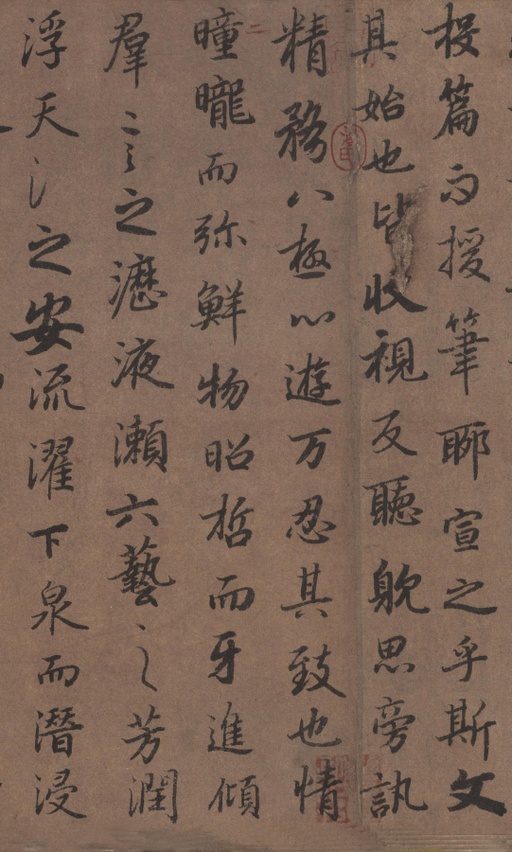 投篇而援筆聊宣之乎斯文
其始也皆收視反聽躭思旁訊
精務八極心遊万忍其致也情
曈曨而弥鮮物昭哲而牙進傾
羣言之瀝液瀨六藝之芳潤
浮天淵之安流濯下泉而潛浸